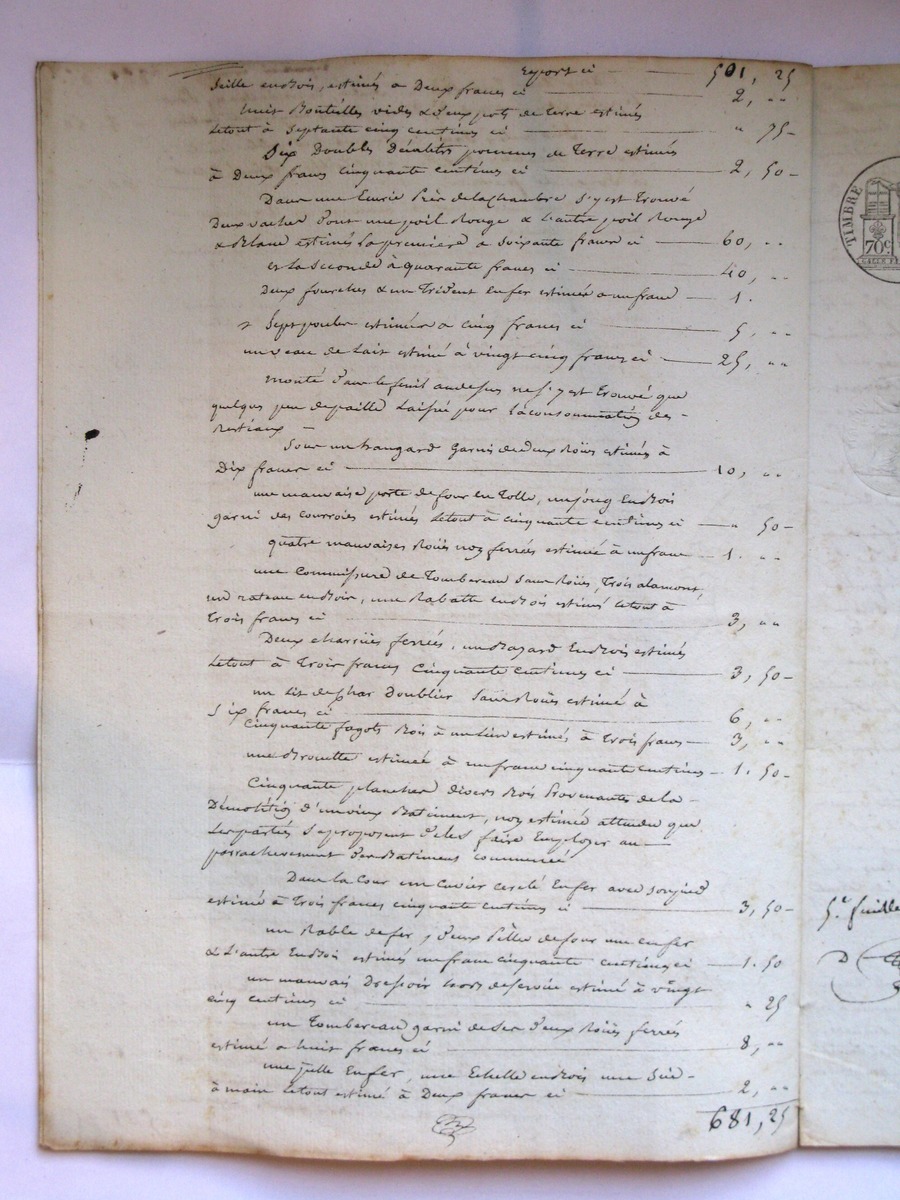 Report ci 501, 25
Seille en Bois, estimés a Deux francs ci 2, ""
huit Boutielles vides & Deux pots de terre estimés
Letout à Septante cinq centimes ci " 75
Six Doubles Décalitres pommes de Terre estimés
à Deux francs cinquante centimes ci 2, 50
Dans une Ecurie Près de la Chambre S'y est Trouvé
Deux vaches D'ont une poil Rouge & L'autre poil Rouge
& Blanc estimés La premiere a Soixante francs ci 60, ""
et la Seconde à quarante francs ci 40, ""
Deux fourches & un Trident En fer estimés a un franc 1.
Sept poules estimées a cinq francs ci 5, ""
un veau de Lait estimé à vingt cinq francs ci 25, ""
monté Dans le fenil au dessus ne s'y est Trouvé que
quelque peu de paille Laissé pour La consommation des
Bestiaux
Sous un hangard Garni de deux Roües estimés à
Dix francs ci 10, ""
une mauvaise porte de four en Tolle, un joug En Bois
garni des courroies estimés Letout à cinquante centimes ci " 50
quatre mauvaises Roües non ferrées estimées à un franc 1. ""
une Commissure de Tombereau Sans Roües, Trois
un rateau en Bois, une Rabatte en Bois estimés Letout à
Trois francs ci 3, ""
Deux charrües ferrées, un En Bois estimés
Letout à Trois francs Cinquante Centimes ci 3, 50
un Lit de Char Doublier Sans Roües estimé à
Six francs ci 6, ""
Cinquante fagots Bois à un Lien estimés à Trois francs 3, ""
une Brouette estimée à un franc cinquante centimes 1. 50
Cinquante planches divers Bois Provenantes de la
Démolition d'un vieux Batiment, non estimées attendu que
Les parties Se proposent De les faire Employer au
parachevement D'un Batiment commencé
Dans la Cour un Cuvier cerclé En fer avec Son pied
estimé à Trois francs cinquante centimes ci 3, 50
un Rable de fer, Deux Pelles de four une en fer
& L'autre En Bois estimés un franc cinquante centimes ci 1. 50
un mauvais Dressoir hors de Service estimé à vingt
cinq centimes ci " 25
un Tombereau garni de Ses Deux Roües ferrés
estimé a huit francs ci 8, ""
une En fer, une Echelle en Bois une Scie
à main Letout estimé à Deux francs ci 2, ""
681, 25
TIMBRE
70c
5e. feuille